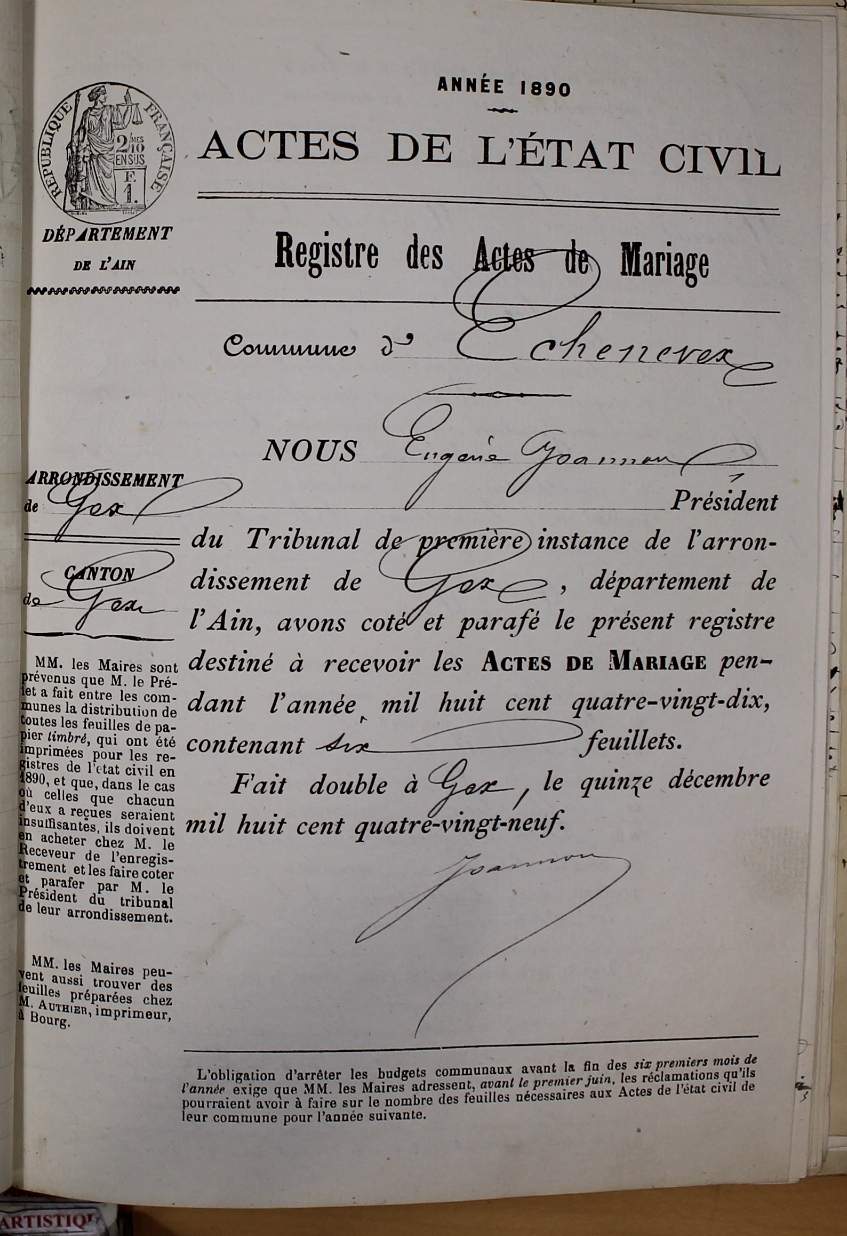 ANNÉE 1890
ACTES DE L'ÉTAT CIVIL
RÉPUBLIQUE FRANÇAISE
2 ÈMES
10
EN SUS
F.
1.
DÉPARTEMENT
DE L'AIN
Registre des Actes de Mariage
Commune d' Echenevex
NOUS Eugène Joannon
Président
du Tribunal de première instance de l'arron-
dissement de Gex, département de
l'Ain, avons coté et parafé le présent registre
destiné à recevoir les ACTES DE MARIAGE pen-
dant l'année mil huit cent quatre-vingt-dix,
contenant six feuillets.
Fait double à Gex, le quinze décembre
mil huit cent quatre-vingt-neuf.
Joannon
ARRONDISSEMENT
de Gex
CANTON
de Gex
MM. les Maires sont
prévenus que M. le Pré-
fet a fait entre les com-
munes la distribution de
toutes les feuilles de pa-
pier timbré, qui ont été
imprimées pour les re-
gistres de l'état civil en
1890, et que, dans le cas
où celles que chacun
d'eux a reçues seraient
insuffisantes, ils doivent
en acheter chez M. le
Receveur de l'enregis-
trement et les faire coter
et parafer par M. le
Président du tribunal
de leur arrondissement.
MM. les Maires peu-
vent aussi trouver des
feuilles préparées chez
M. AUTHIER, imprimeur,
à Bourg.
L'obligation d'arrêter les budgets communaux avant la fin des six premiers mois de
l'année exige que MM. les Maires adressent, avant le premier juin, les réclamations qu'ils
pourraient avoir à faire sur le nombre des feuilles nécessaires aux Actes de l'état civil de
leur commune pour l'année suivante.
ARTISTIQ